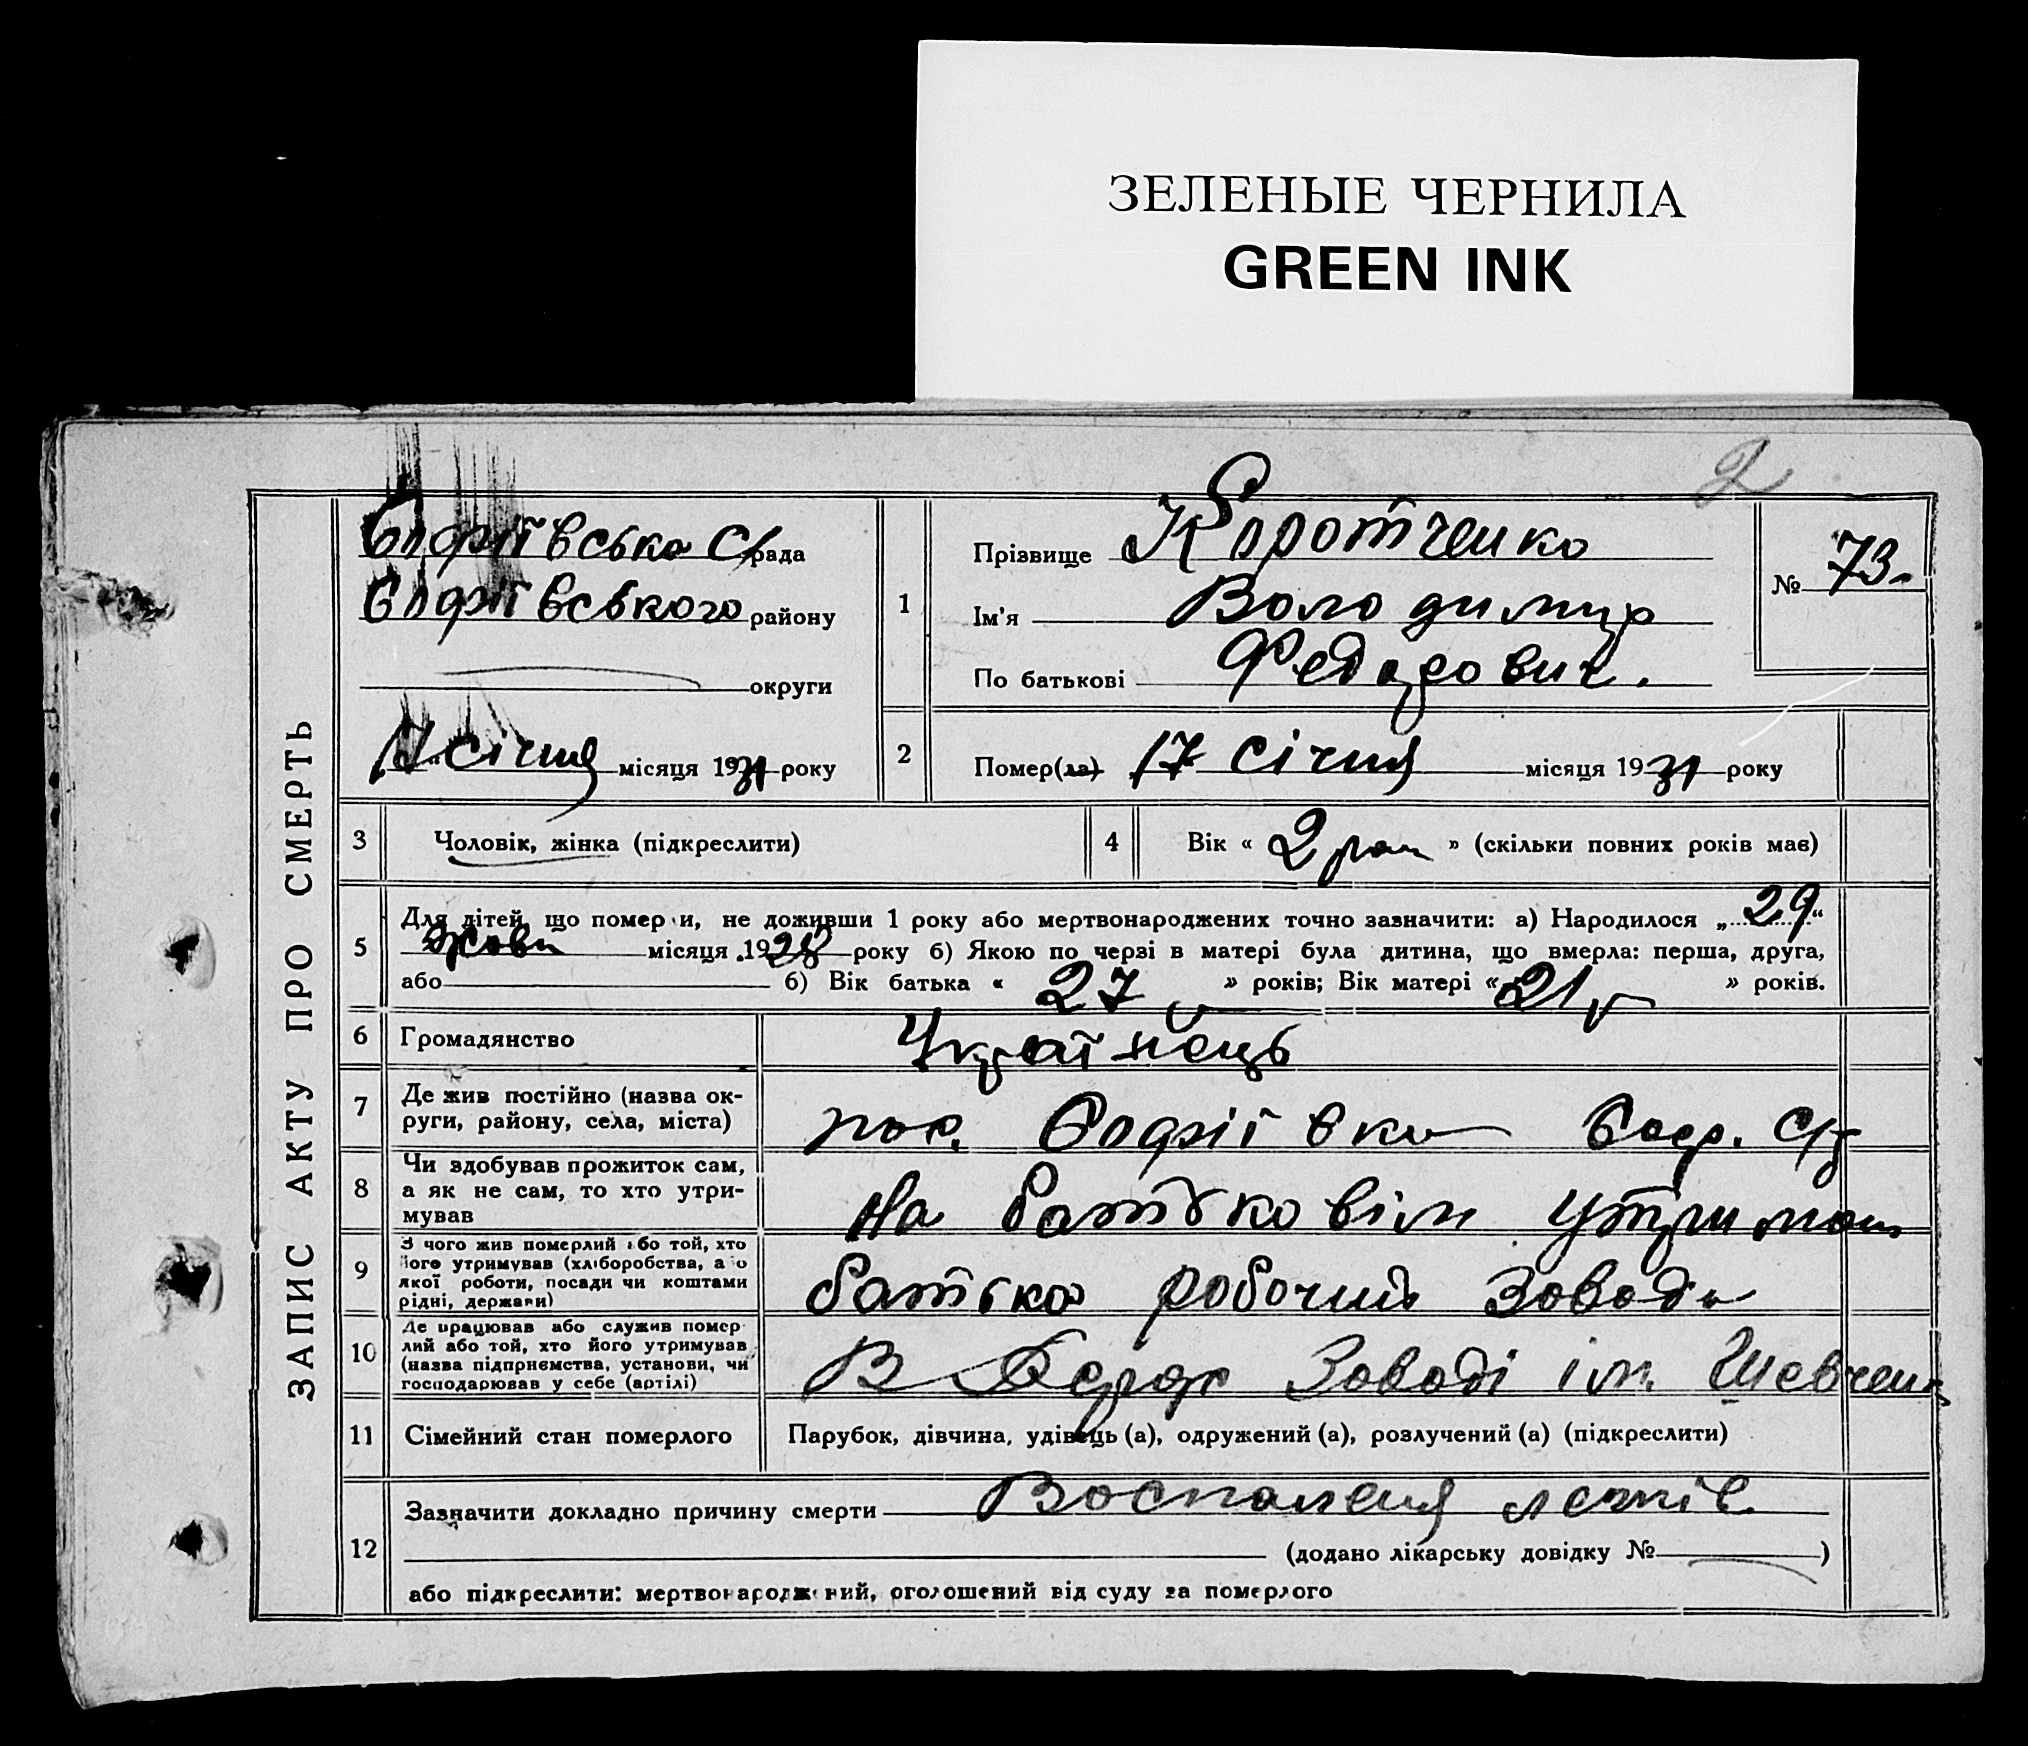 ЗЕЛЕНЫЕ ЧЕРНИЛА
GREEN INK
2
ЗАПИС АКТУ ПРО СМЕРТЬ
Софіївська С/рада
Софіївського району
округи
17 січня місяця 1931 року
1
Прізвище Коротченко
Ім'я Володимир
По батькові Федорович.
№ 73.
2
Помер(ла) 17 січня місяця 1931 року
3 Чоловік, жінка (підкреслити)
4 Вік « 2 роки » (скільки повних років має)
5 Для дітей, що померли, не доживши 1 року або мертвонароджених точно зазначити: а) Народилося „ 29 “
жовт місяця 1928 року б) Якою по черзі в матері була дитина, що вмерла: перша, друга,
або б) Вік батька « 27 » років; Вік матері « 21 » років.
6 Громадянство Українець
7 Де жив постійно (назва округи, району, села, міста) пос. Софіївка Соф. С/р
8 Чи здобував прожиток сам, а як не сам, то хто утримував На батьковім утриман
9 З чого жив померлий або той, хто його утримував (хліборобства, або якої роботи, посади чи коштами рідні, держави) батька робочий Завода
10 Де працював або служив померлий або той, хто його утримував (назва підприємства, установи, чи господарював у себе (артілі) В Держ Заводі ім. Шевченк
11 Сімейний стан померлого Парубок, дівчина, удівець (а), одружений (а), розлучений (а) (підкреслити)
12 Зазначити докладно причину смерти Воспаленя легнів
(додано лікарську довідку № )
або підкреслити: мертвонароджений, оголошений від суду за померлого